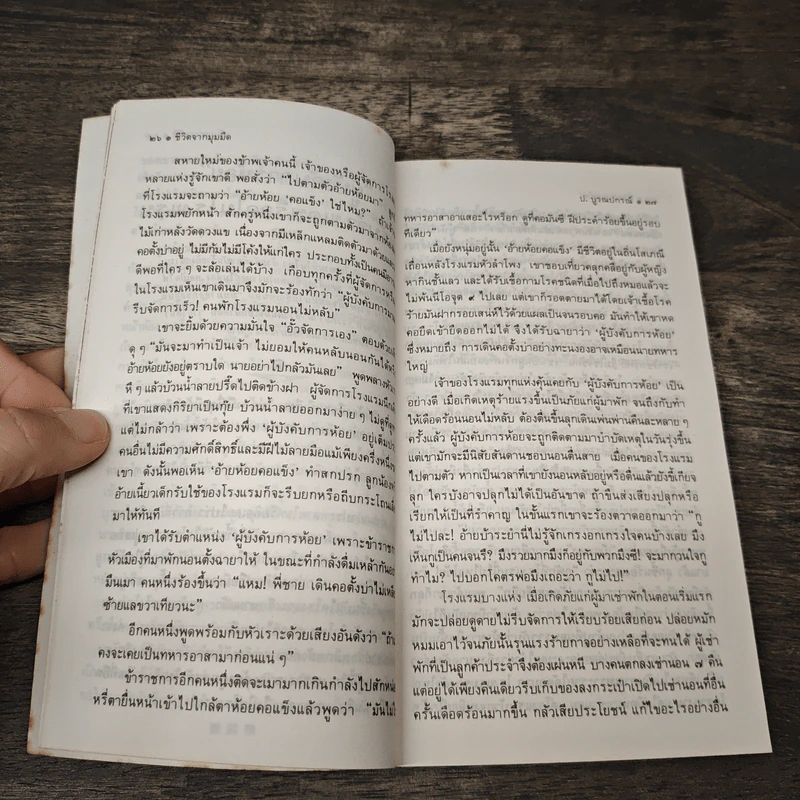 ๒๖ ๑ ชีวิตจากมุมมืด
สหายใหม่ของข้าพเจ้าคนนี้ เจ้าของหรือผู้จัดการโรง
หลายแห่งรู้จักเขาดี พอสั่งว่า “ไปตามตัวอ้ายห้อยมา”
ที่โรงแรมจะถามว่า “อ้ายห้อย ‘คอแข็ง’ ใช่ไหม?”
โรงแรมพยักหน้า สักครู่หนึ่งเขาก็จะถูกตามตัวมาจาก
ไม้เก่าหลังวัดดวงแข เนื่องจากมีเหล็กแหลมติดตัวมาด้วย
คอตั้งบ่าอยู่ ไม่มีก้มไม่มีโค้งให้แก่ใคร ประกอบทั้งเป็นคนมี
ดีพอที่ใคร ๆ จะล้อเล่นได้บ้าง เกือบทุกครั้งที่ผู้จัดการ
ในโรงแรมเห็นเขาเดินมาจึงมักจะร้องทักว่า “ผู้บังคับการมา
รีบจัดการเร็ว! คนพักโรงแรมนอนไม่หลับ”
เขาจะยิ้มด้วยความมั่นใจ “อั๊วจัดการเอง” ตอบด้วย
ดุ ๆ “มันจะมาทำเป็นเจ้า ไม่ยอมให้คนหลับนอนกันได้
อ้ายห้อยยังอยู่ตราบใด นายอย่าไปกลัวมันเลย” พูดพลาง
หึ ๆ แล้วบ้วนน้ำลายปรี๊ดไปติดข้างฝา ผู้จัดการโรงแรม
ที่เขาแสดงกิริยาเป็นกุ๊ย บ้วนน้ำลายออกมาง่าย ๆ ไม่ดูที่
แต่ไม่กล้าว่า เพราะต้องพึ่ง ‘ผู้บังคับการห้อย’ อยู่เต็ม
คนอื่นไม่มีความศักดิ์สิทธิ์และมีฝีไม้ลายมือแม้เพียงครึ่งหนึ่ง
เขา ดังนั้นพอเห็น ‘อ้ายห้อยคอแข็ง’ ทำสกปรก ลูกน้อง
อ้ายเนี้ยวเด็กรับใช้ของโรงแรมก็จะรีบยกหรือถีบกระโถน
มาให้ทันที
เขาได้รับตำแหน่ง ‘ผู้บังคับการห้อย’ เพราะข้าราช
หัวเมืองที่มาพักนอนตั้งฉายาให้ ในขณะที่กำลังดื่มเหล้ากัน
มึนเมา คนหนึ่งร้องขึ้นว่า “แหม! พี่ชาย เดินคอตั้งบ่าไม่
ซ้ายแลขวาเทียวนะ”
อีกคนหนึ่งพูดพร้อมกับหัวเราะด้วยเสียงอันดังว่า
คงจะเคยเป็นทหารอาสามาก่อนแน่ ๆ”
ข้าราชการอีกคนหนึ่งติดจะเมามากเกินกำลังไปสัก
หรี่ตายื่นหน้าเข้าไปใกล้ตาห้อยคอแข็งแล้วพูดว่า “มันไม่
ป. บูรณปกรณ์ ๑ ๒๗
ทหารอาสาอาแสอะไรหร็อก ดูที่คอมันซี ฝีประคำร้อยขึ้นอยู่รอบ
ทีเดียว”
เมื่อยังหนุ่มอยู่นั้น ‘อ้ายห้อยคอแข็ง’ มีชีวิตอยู่ในถิ่นโสเภณี
เถื่อนหลังโรงแรมหัวลำโพง เขาชอบเที่ยวคลุกคลีอยู่กับผู้หญิง
หากินชั้นเลว และได้รับเชื้อกามโรคชนิดที่เมื่อไปถึงหมอแล้วจะ
ไม่พ้นนีโอจุด ๙ ไปเลย แต่เขาก็รอดตายมาได้โดยเจ้าเชื้อโรค
ร้ายมันฝากรอยเสน่ห์ไว้ด้วยแผลเป็นจนรอบคอ มันทำให้เขาหด
คอยืดเข้ายืดออกไม่ได้ จึงได้รับฉายาว่า ‘ผู้บังคับการห้อย’
ซึ่งหมายถึง การเดินคอตั้งบ่าอย่างทะนงองอาจเหมือนนายทหาร
ใหญ่
เจ้าของโรงแรมทุกแห่งคุ้นเคยกับ ‘ผู้บังคับการห้อย’ เป็น
อย่างดี เมื่อเกิดเหตุร้ายแรงขึ้นเป็นภัยแก่ผู้มาพัก จนถึงกับทำ
ให้เดือดร้อนนอนไม่หลับ ต้องตื่นขึ้นลุกเดินเพ่นพ่านคืนละหลาย ๆ
ครั้งแล้ว ผู้บังคับการห้อยจะถูกติดตามมาบำบัดเหตุในวันรุ่งขึ้น
แต่เขามักจะมีนิสัยสันดานชอบนอนตื่นสาย เมื่อคนของโรงแรม
ไปตามตัว หากเป็นเวลาที่เขายังนอนหลับอยู่หรือตื่นแล้วยังขี้เกียจ
ลุก ใครบังอาจปลุกไม่ได้เป็นอันขาด ถ้าขืนส่งเสียงปลุกหรือ
เรียกให้เป็นที่รำคาญ ในขั้นแรกเขาจะร้องตวาดออกมาว่า “กู
ไม่ไปละ! อ้ายบ้าระยำนี่ไม่รู้จักเกรงอกเกรงใจคนบ้างเลย มึง
เห็นกูเป็นคนจนรึ? มึงรวยมากมึงก็อยู่กับพวกมึงซี! จะมากวนใจกู
ทำไม? ไปบอกโคตรพ่อมึงเถอะว่า กูไม่ไป!”
โรงแรมบางแห่ง เมื่อเกิดภัยแก่ผู้มาเช่าพักในตอนเริ่มแรก
มักจะปล่อยดูดายไม่รีบจัดการให้เรียบร้อยเสียก่อน ปล่อยหมัก
หมมเอาไว้จนภัยนั้นรุนแรงร้ายกาจอย่างเหลือที่จะทนได้ ผู้เช่า
พักที่เป็นลูกค้าประจำจึงต้องเผ่นหนี บางคนตกลงเช่านอน ๗ คืน
แต่อยู่ได้เพียงคืนเดียวรีบเก็บของลงกระเป๋าเปิดไปเช่านอนที่อื่น
ครั้นเดือดร้อนมากขึ้น กลัวเสียประโยชน์ แก้ไขอะไรอย่างอื่น